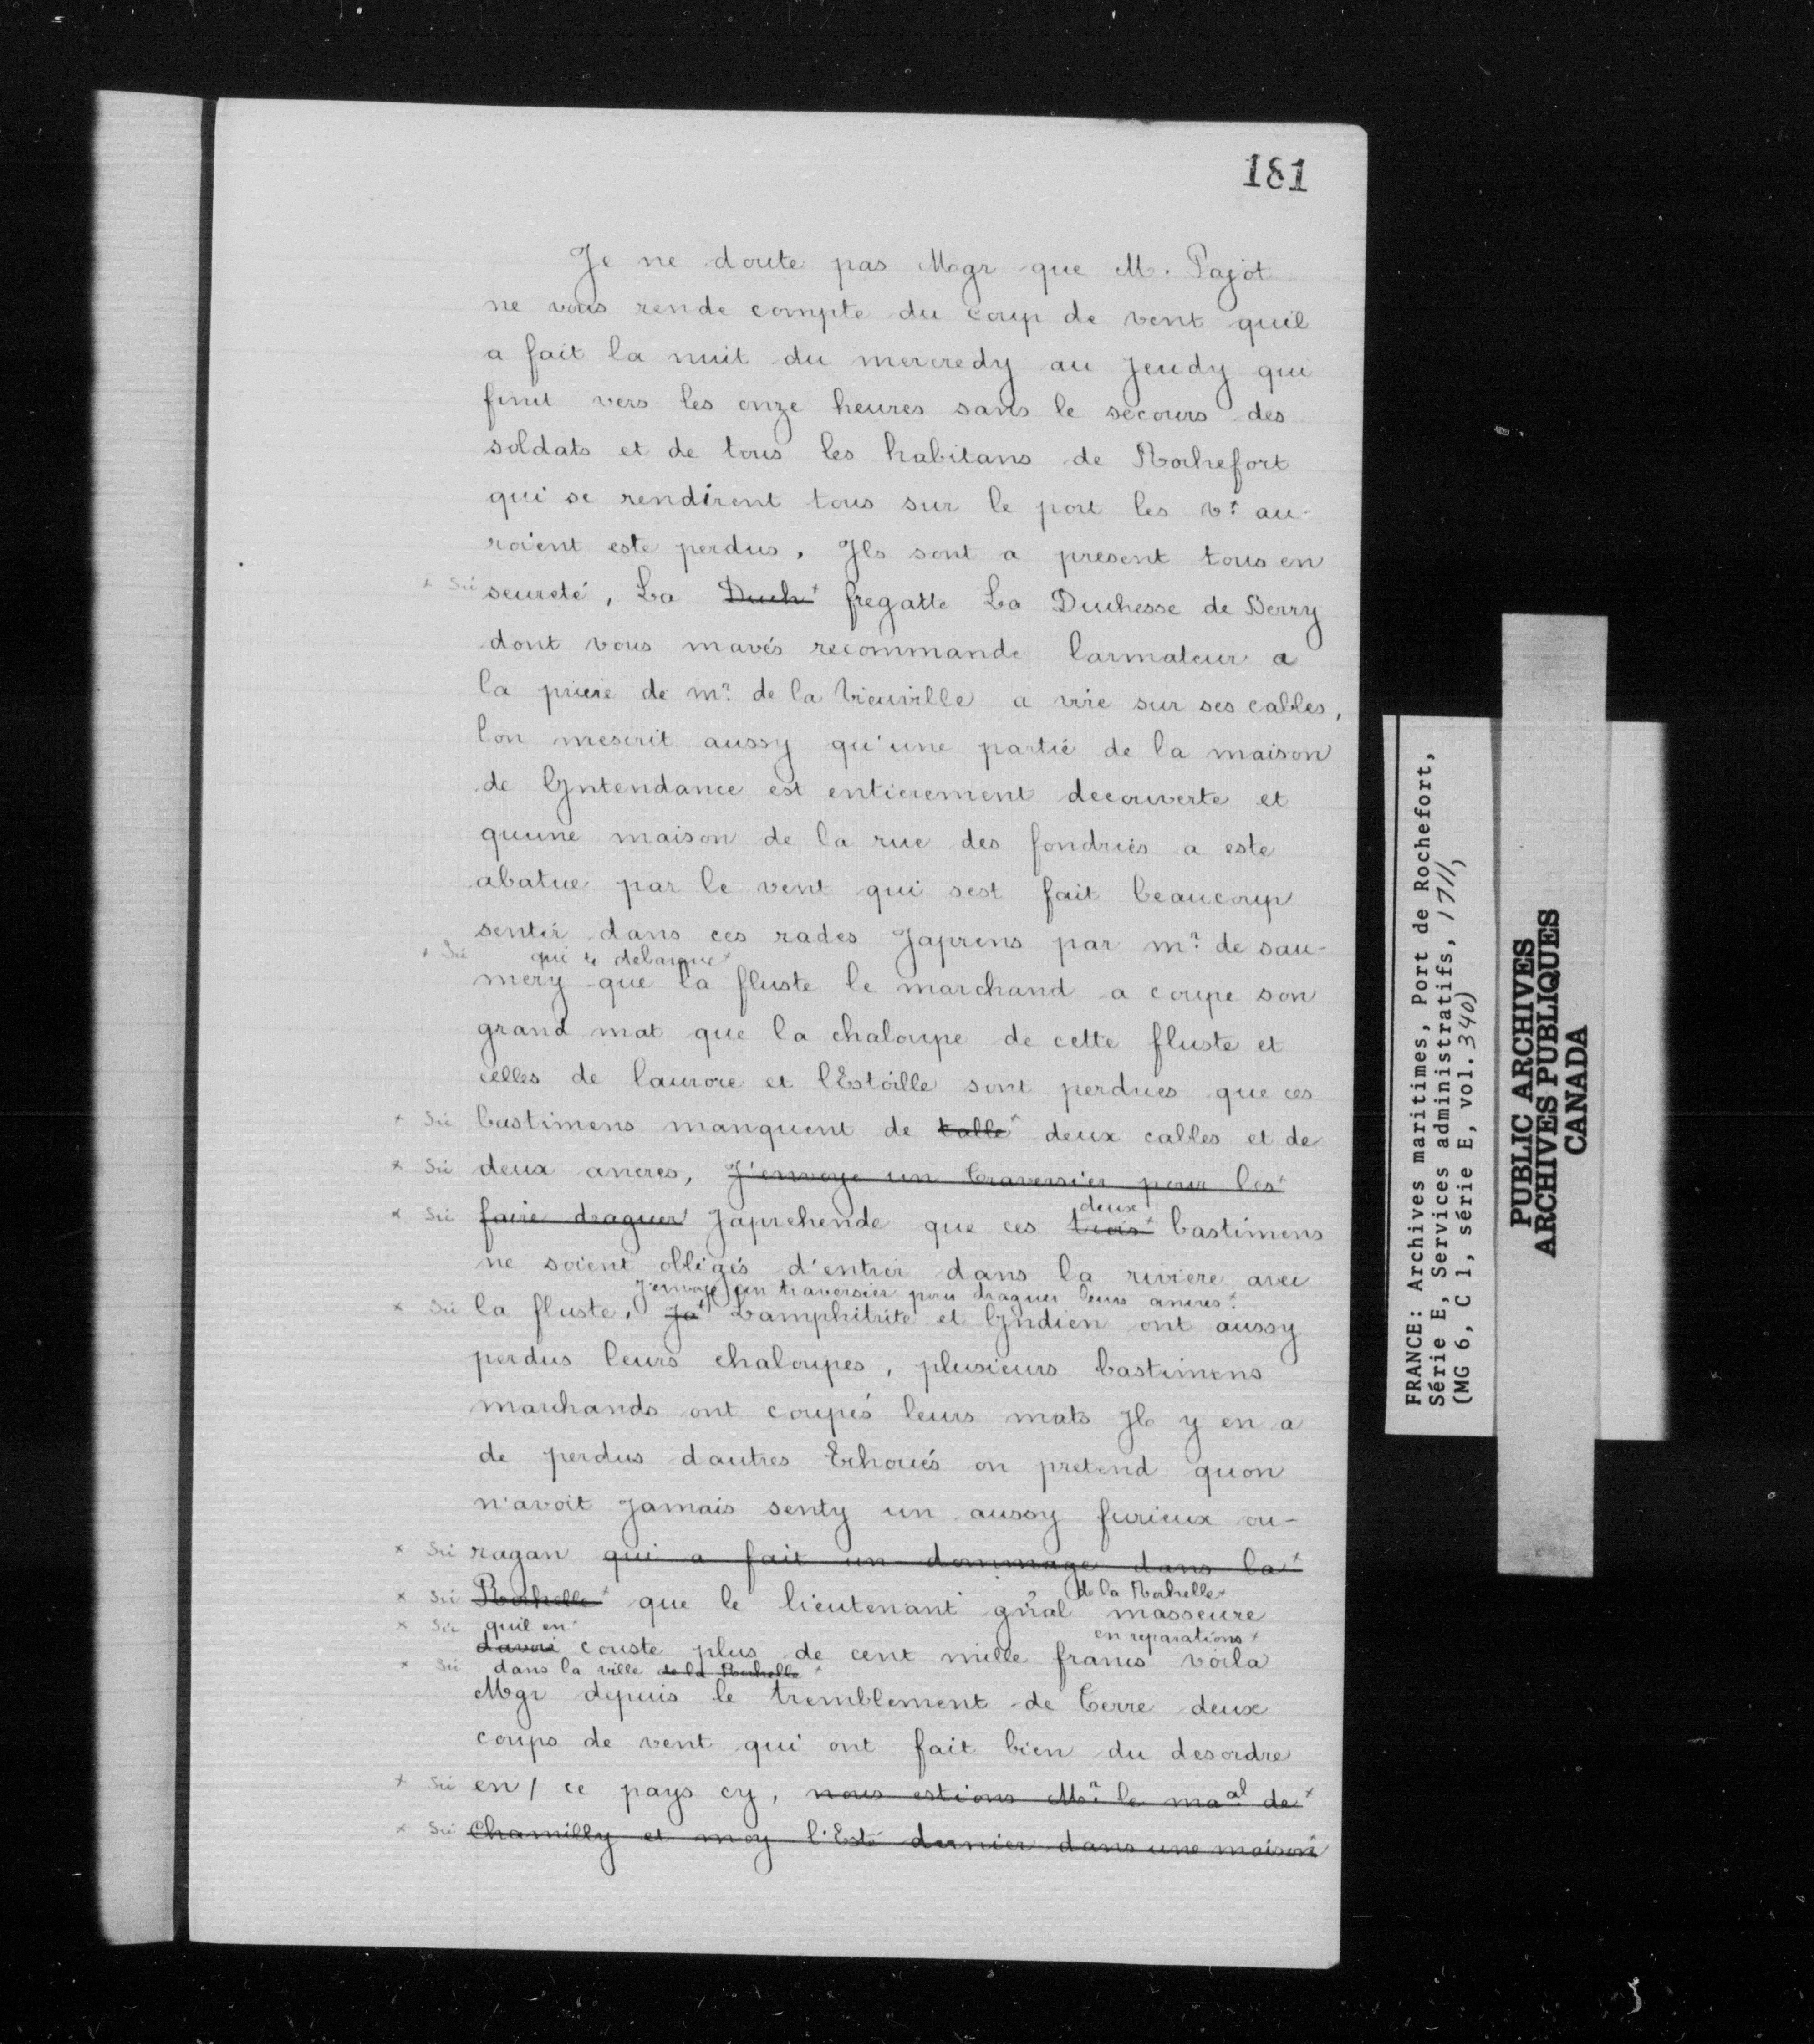 181
Je ne doute pas Mgr que M. Pajot
ne vous rende compte du coup de vent quil
a fait la nuit du mercredy au Jeudy qui
finit vers les onze heures sans le secours des
soldats et de tous les habitans de Rochefort
qui se rendirent tous sur le port les vx au-
roient este perdus. Ils sont a present tous en
x Sic seureté, La Duch x fregatte La Duchesse de Berry
dont vous mavés recommande larmateur a
la priere de mr. de la Vieuville a vire sur ses cables,
lon mescrit aussy qu'une partie de la maison
de Lyntendance est entierement decouverte et
quune maison de la rue des fondries a este
abatue par le vent qui sest fait beaucoup
sentir dans ces rades Japrens par mr. de sau-
x Sic qui debarque x
mery que la fluste le marchand a coupe son
grand mat que la chaloupe de cette fluste et
celles de laurore et lEstoille sont perdues que ces
x Sic bastimens manquent de calle x deux cables et de
x Sic deux ancres, J'envoye un traversier pour les x
deux
x Sic faire draguer Japrehende que ces trois x bastimens
ne soient obligés d'entrer dans la riviere avec
J'envoye un traversier pour draguer leurs ancres x
x Sic la fluste, Ja x Lamphitrite et Lyndien ont aussy
perdus leurs chaloupes, plusieurs bastimens
marchands ont coupés leurs mats Jl y en a
de perdus dautres Echoués on pretend quon
n'avoit Jamais senty un aussy furieux ou-
x Sic ragan qui a fait un dommage dans la x
de la Rochelle x
x Sic Rochelle x que le lieutenant gñal masseure
x Sic quil en x en reparations x
davoir couste plus de cent mille francs voila
x Sic dans la ville de la Rochelle x
Mgr depuis le tremblement de Terre deux
coups de vent qui ont fait bien du desordre
x Sic en / ce pays cy, nous estions Mr. le maal de x
x Sic Chamilly et moy l'Esté dernier dans une maison
FRANCE: Archives maritimes, Port de Rochefort,
Série E, Services administratifs, 1711,
(MG 6, C 1, série E, vol. 340)
PUBLIC ARCHIVES
ARCHIVES PUBLIQUES
CANADA